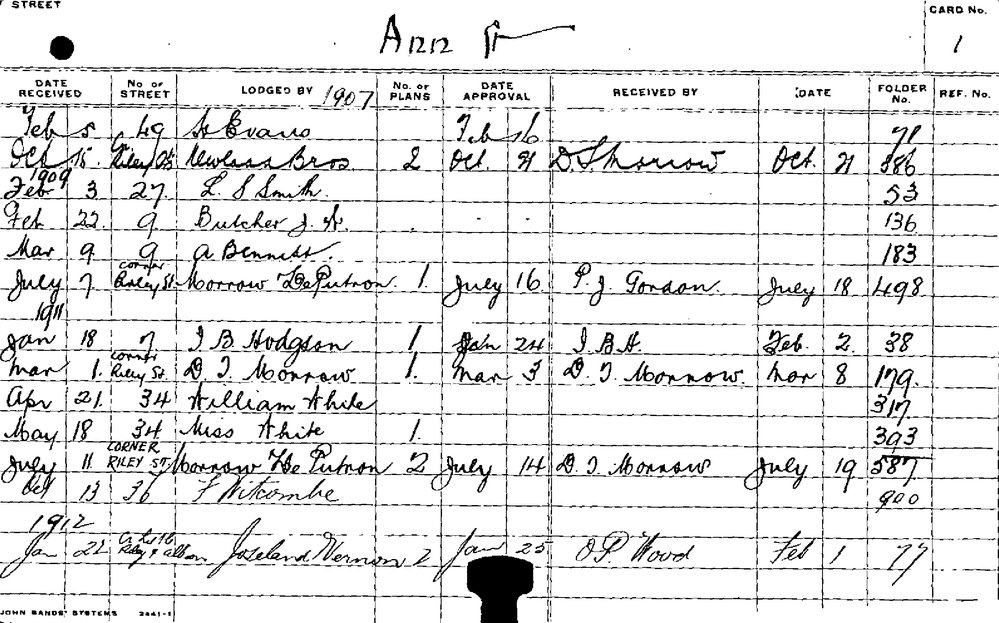 STREET
Ann St
CARD No.
1
DATE RECEIVED No of STREET LODGED BY 1907 No. or PLANS DATE APPROVAL RECEIVED BY DATE FOLDER No. REF. No.
Feb 5 49 Evans Feb 16 71
Oct 15 Riley St Bros 2 Oct. 21 D. T. Morrow Oct. 21 586
1909
Feb 3 27 L. S Smith. 53
Feb 22 9 Butcher J. 136
Mar 9 9 A Bennett. 183
July 7 corner Riley St. Morrow & De Putron. 1. July 16. P. J. Gordon. July 18 498
1911
Jan 18 7 J B Hodgson 1. Jan 24 J. B. H. Feb. 2. 38
Mar 1. corner Riley St. D T Morrow 1. Mar 3 D. T. Morrow. Mar 8 179.
Apr 21. 34 William White 317.
May 18 34 Miss White 1. 393
July 11 CORNER RILEY ST. Morrow & De Putron 2 July 14 D. T. Morrow July 19 587
Oct 13 36 F Witcombe 900
1912
Jan 22 Riley & Albion Joseland & Vernon 2 Jan 25 O P. Wood Feb 1 77
JOHN SANDS' SYSTEMS 2441-1